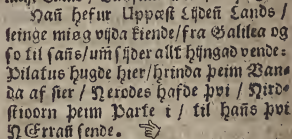 Hañ hefur Uppæst Lýden Lands /
leinge miøg vijda kiende / fra Galilea og
so til sañs / um sijder allt hijngad vende:
Pilatus hugde hier / hrinda þeim Van-
da af sier / Herodes hafde þvi / Hird-
stioorn þeim Parte i / til hañs þvi
HErrañ sende. ☞